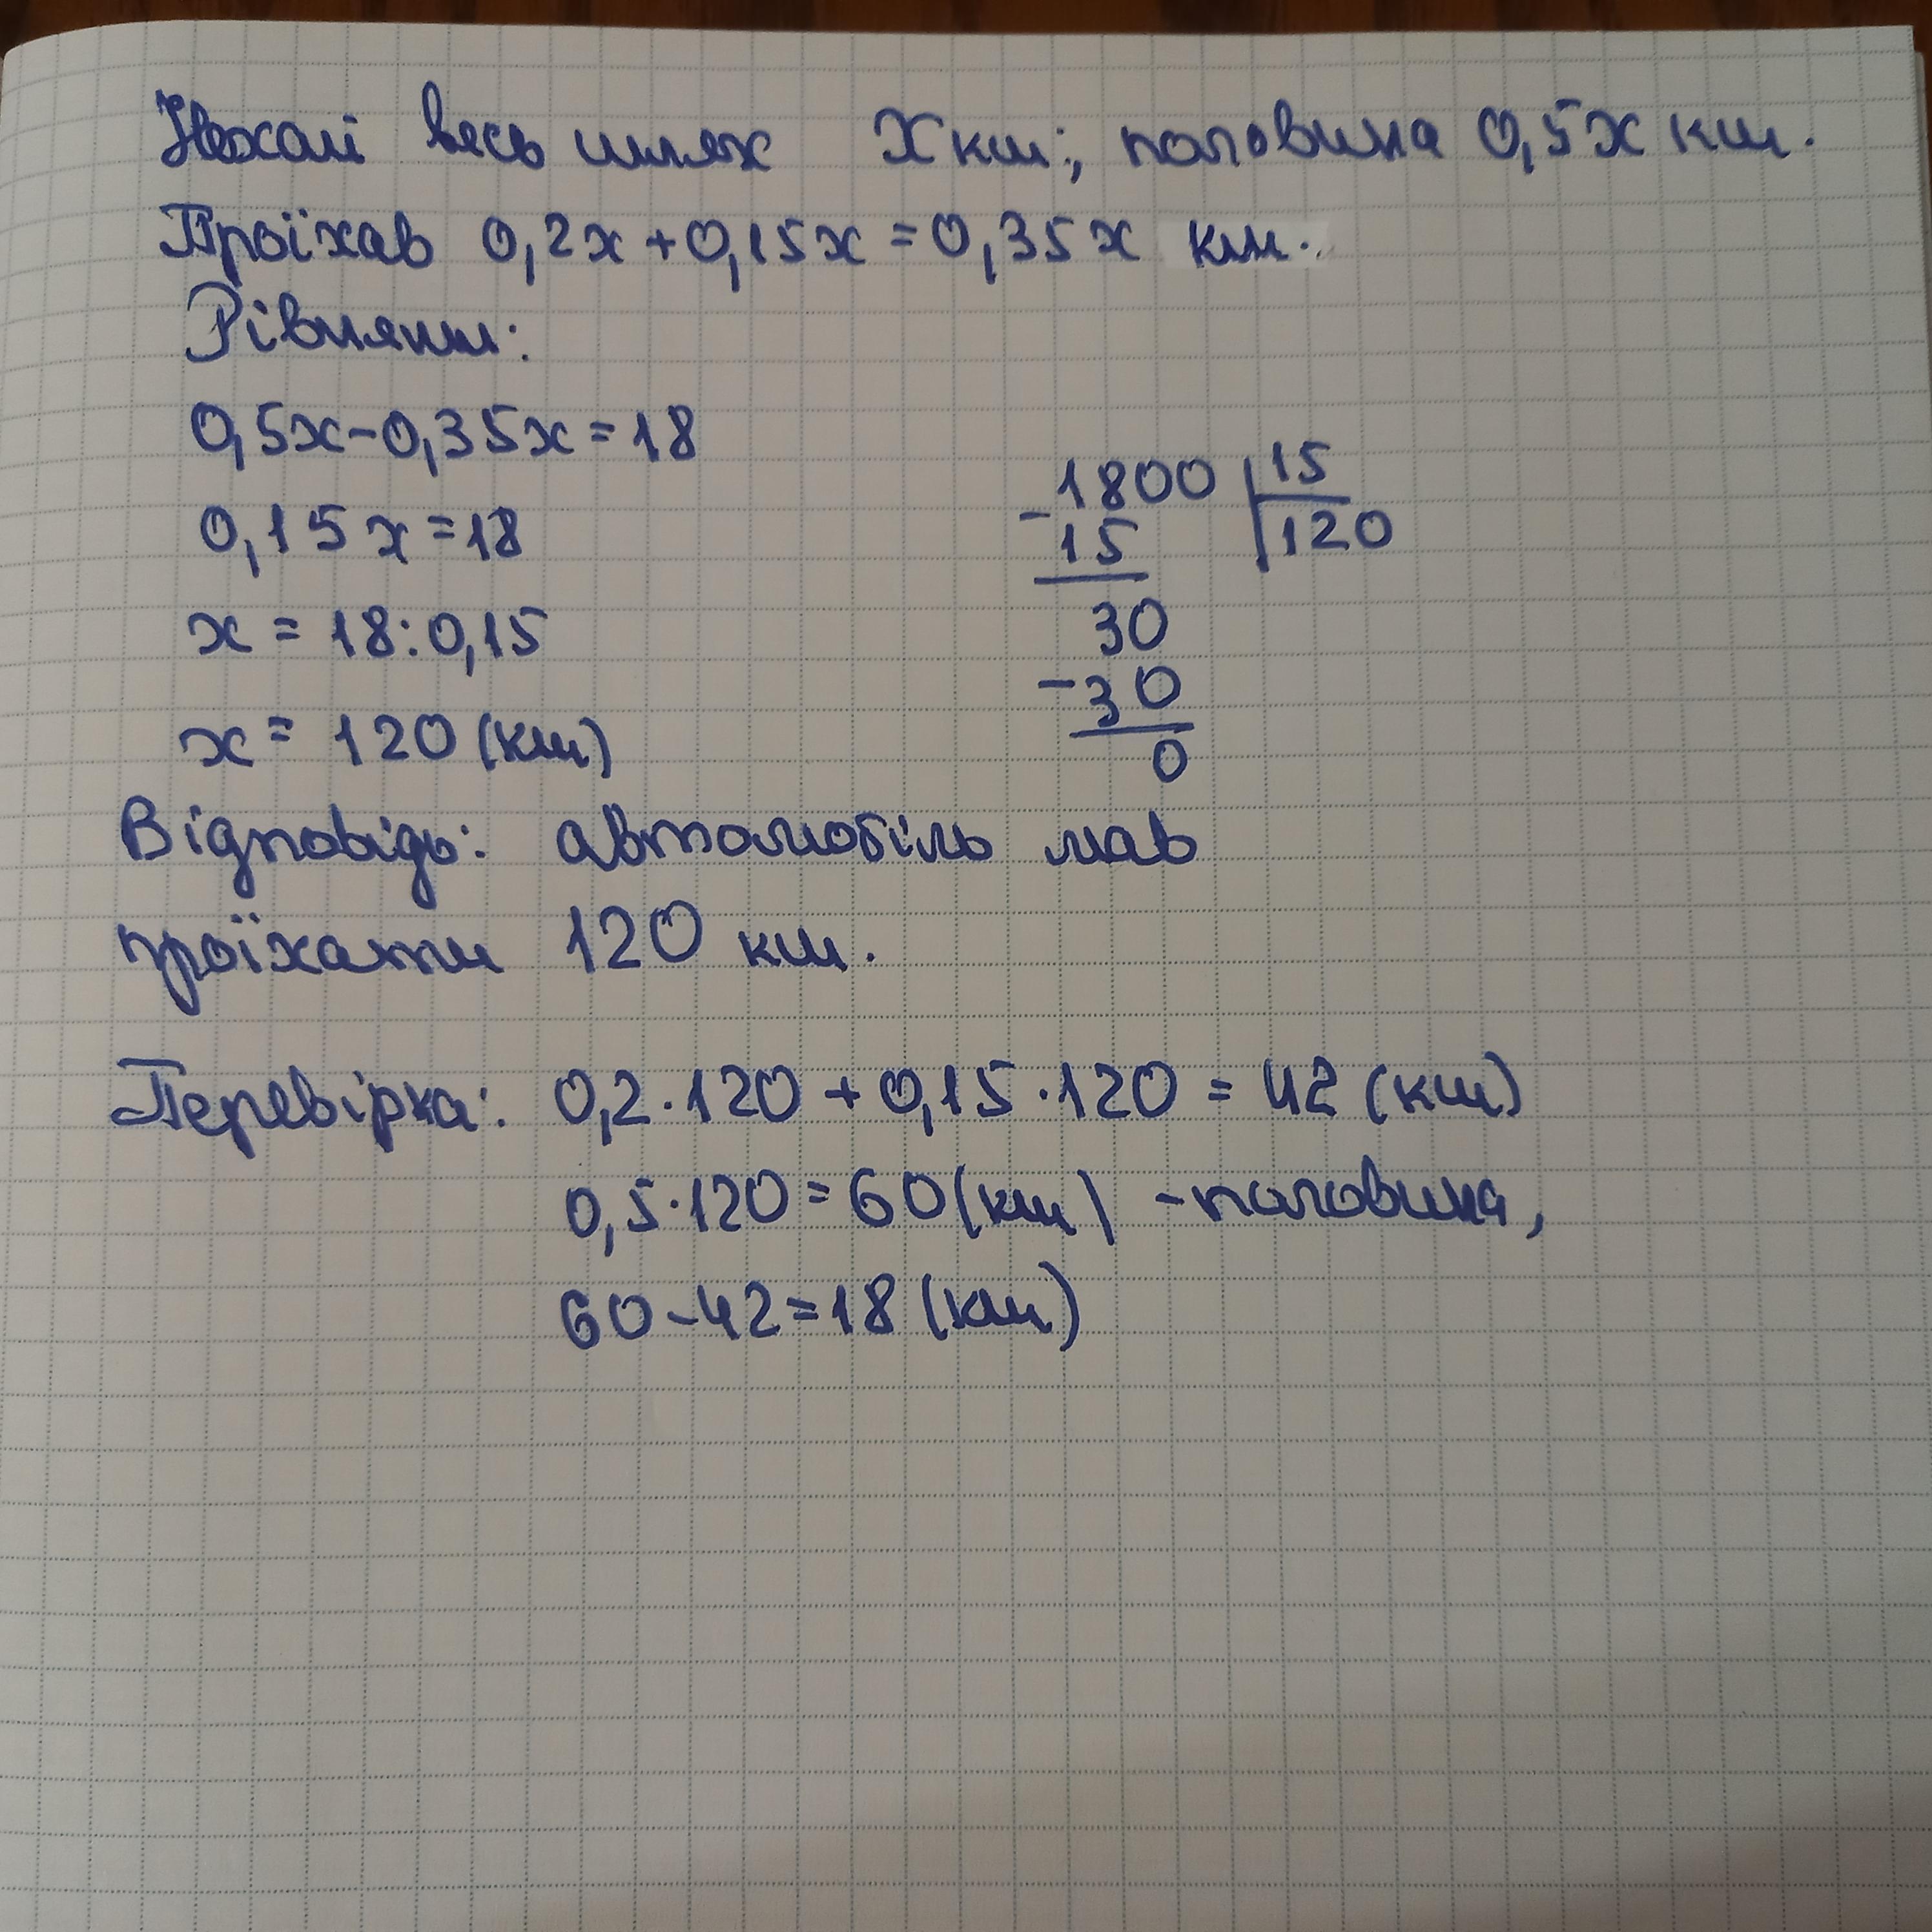 Нехай весь шлях x км; половина 0,5x км.
Проїхав 0,2x + 0,15x = 0,35x км.
Рівняння:
0,5x - 0,35x = 18
0,15x = 18
x = 18 : 0,15
x = 120 (км)
-1800 | 15
15 | 120
30
-30
0
Відповідь: автомобіль мав
проїхати 120 км.
Перевірка: 0,2 · 120 + 0,15 · 120 = 42 (км)
0,5 · 120 = 60 (км) - половина,
60 - 42 = 18 (км)